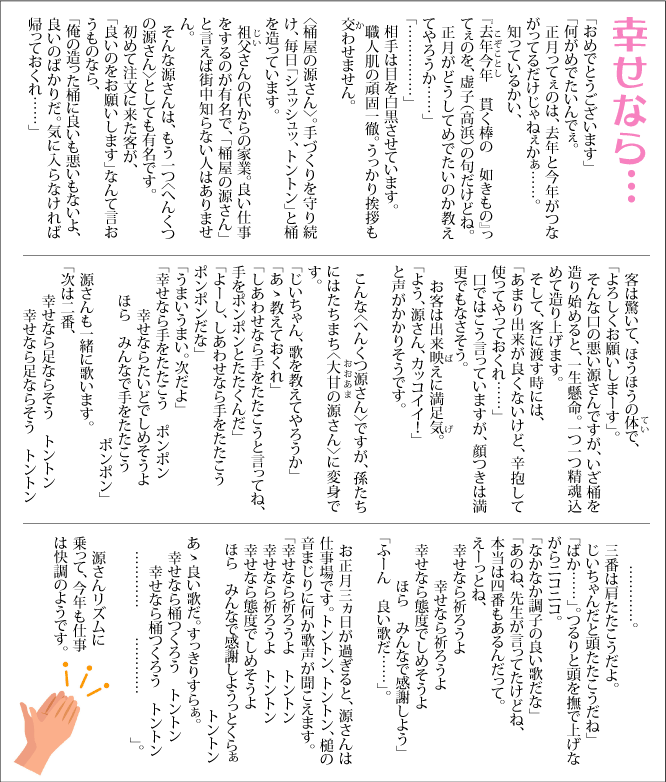 幸せなら…
「おめでとうございます」
「何がめでたいんでぇ。
　正月ってぇのは、去年と今年がつな
がってるだけじゃねぇかぁ……。
　知っているかい、
『去年今年　貫く棒の　如きもの』っ
こぞことし
てぇのを、虚子〈高浜〉の句だけどね。
　正月がどうしてめでたいのか教え
てやろうか……」
「………………」
　相手は目を白黒させています。
　職人肌の頑固一徹。うっかり挨拶も
交わせません。
か
〈桶屋の源さん〉。手づくりを守り続
け、毎日「シュッシュッ、トントン」と桶
を造っています。
　祖父さんの代からの家業。良い仕事
じい
をするのが有名で、「桶屋の源さん」
と言えば街中知らない人はありませ
ん。
　そんな源さんは、もう一つ〈へんくつ
の源さん〉としても有名です。
　初めて注文に来た客が、
「良いのをお願いします」なんて言お
うものなら、
「俺の造った桶に良いも悪いもないよ、
良いのばかりだ。気に入らなければ
帰っておくれ……」
　客は驚いて、ほうほうの体で、
てい
「よろしくお願いしまーす」。
　そんな口の悪い源さんですが、いざ桶を
造り始めると、一生懸命。一つ一つ精魂込
めて造り上げます。
　そして、客に渡す時には、
「あまり出来が良くないけど、辛抱して
使ってやっておくれ……」
　口ではこう言っていますが、顔つきは満
更でもなさそう。
　お客は出来映えに満足気。
ば
げ
「よう、源さん、カッコイイ！」
と声がかかりそうです。
　こんな〈へんくつ源さん〉ですが、孫たち
にはたちまち〈大甘の源さん〉に変身で
おおあま
す。
「じいちゃん、歌を教えてやろうか」
「あゝ教えておくれ」
「しあわせなら手をたたこうと言ってね、
手をポンポンとたたくんだ」
「よーし、しあわせなら手をたたこう
ポンポンだな」
「うまいうまい。次だよ」
「幸せなら手をたたこう　ポンポン
　幸せならたいどでしめそうよ
　ほら　みんなで手をたたこう
ポンポン」
　源さんも一緒に歌います。
「次は二番、
　幸せなら足ならそう　トントン
　幸せなら足ならそう　トントン
………………。
　三番は肩たたこうだよ。
　じいちゃんだと頭たたこうだね」
「ばか……」。つるりと頭を撫で上げな
がらニコニコ。
「なかなか調子の良い歌だな」
「あのね、先生が言ってたけどね、
本当は四番もあるんだって。
えーっとね、
　幸せなら祈ろうよ
　幸せなら祈ろうよ
　幸せなら態度でしめそうよ
　ほら　みんなで感謝しよう」
「ふーん　良い歌だ……」。
　お正月三ヵ日が過ぎると、源さんは
仕事場です。トントン、トントン、槌の
音まじりに何か歌声が聞こえます。
「幸せなら祈ろうよ　トントン
　幸せなら祈ろうよ　トントン
　幸せなら態度でしめそうよ
　ほら　みんなで感謝しようっとくらぁ
トントン
あゝ良い歌だ。すっきりすらぁ。
　幸せなら桶つくろう　トントン
　幸せなら桶つくろう　トントン
　………………　………………」。
　源さんリズムに
乗って、今年も仕事
は快調のようです。